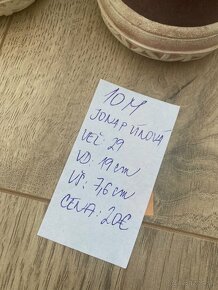 10M
JONAP VÍNOVÁ
VEĽ: 29
VD: 19 cm
VŠ: 7,6 cm
CENA: 20€